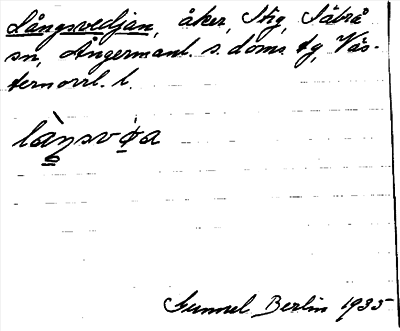 Långsvedjan, åker, Stig, Säbrå
sn, Ångermanl. s. doms. tg, Väs-
ternorrl. l.
Gunnel Berlin 1935